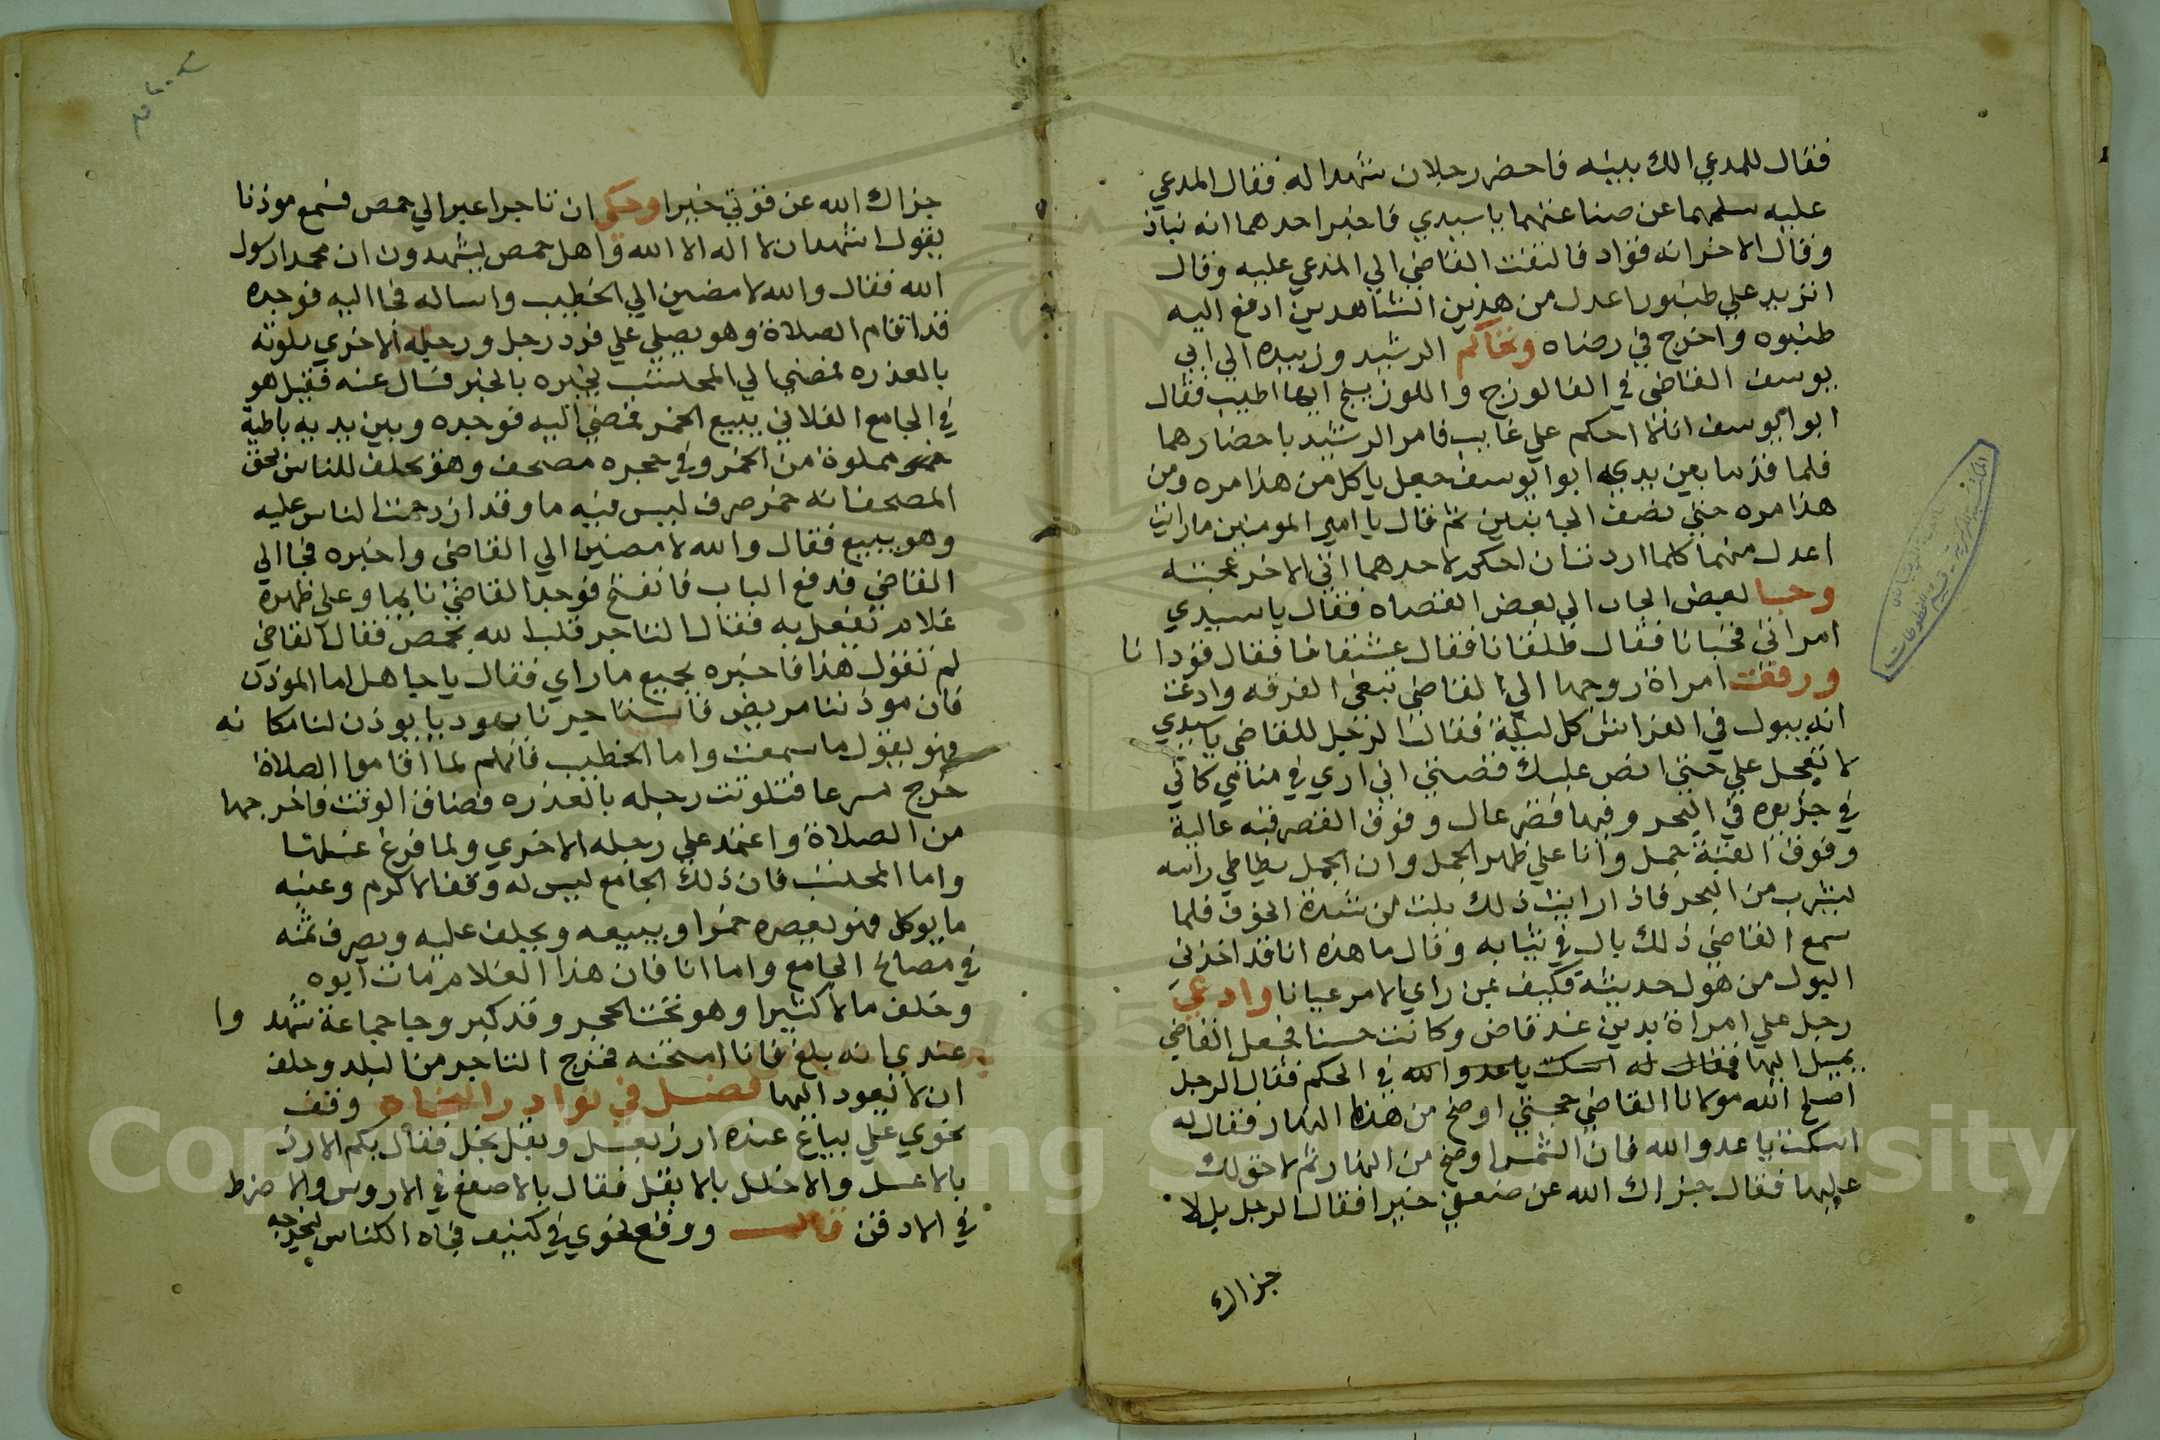 فقال للمدعي الك بينه فاحضر رجلان شهدا له فقال المدعي
عليه سلهما عن صناعتهما يا سيدي فاخبر احدهما انه نباذ
وقال الاخر انه قواد فالتفت القاضي الي المدعي عليه وقال
اتريد علي طنبور اعدل من هذين الشاهدين ادفع اليه
طنبوره واخرج في رضاه وتحاكم الرشيد وزبيده الي ابي
يوسف القاضي في الفالوزج واللوزينج ايها اطيب فقال
ابو ايوسف انا لا احكم علي غايب فامر الرشيد باحضارهما
فلما قدما بين يديه ابو ايوسف جعل ياكل من هذا مره ومن
هذا مره حتي نصف الجانبين ثم قال يا امير المومنين ما رايت
اعدل منهما كلما اردت ان احكم لاحدهما اتي الاخر بحجته
وجا لبعض المجان الي بعض القضاه فقال يا سيدي
امراتي قحبانا فقال طلقانا فقال عشقانا فقال قودانا
ورفعت امراة زوجها الي القاضي تبغي الفرقه وادعت
انه يبول في الفراش كل ليلة فقال الرجل للقاضي يا سيدي
لا تعجل علي حتي اقص عليك قصتي اني اري في منامي كاني
في جزيره في البحر وفيها قصر عال وفوق القصر قبه عالية
وفوق القبة جمل وانا علي ظهر الجمل وان الجمل يطاطي راسه
ليشرب من البحر فاذا رايت ذلك بلت من شدة الخوف فلما
سمع القاضي ذلك بال في ثيابه وقال ما هذه انا قد اخذني
البول من هول حديثه فكيف بمن راي الامر عيانا وادعي
رجل علي امراة بدين عند قاض وكانت حسنا فجعل القاضي
يميل اليها فقال له اسكت يا عدو الله في الحكم فقال الرجل
اصلح الله مولانا القاضي حجتي اوضح من هذا النهار فقال له
اسكت يا عدو الله فان الشمس اوضح من النهار قم لا حق لك
عليها فقال جزاك الله عن ضعفي خيرا فقال الرجل بل لا
جزاك
جزاك الله عن قوتي خيرا وحكي ان تاجرا عبر الي حمص فسمع موذنا
يقول اشهد ان لا اله الا الله واهل حمص يشهدون ان محمدا رسول
الله فقال والله لامضين الي الخطيب واساله فجا اليه فوجده
قد اقام الصلاة وهو يصلي علي فرد رجل ورجله الاخري ملوثه
بالعذره فمضي الي المحتسب يخبره بالخبر فسال عنه فقيل هو
في الجامع الفلاني يبيع الخمر فمضي اليه فوجده وبين يديه باطية
مملوة من الخمر وفي حجره مصحف وهو يحلف للناس بحق
المصحف انه خمر صرف ليس فيه ما وقد ازدحمت الناس عليه
وهو يبيع فقال والله لامضين الي القاضي واخبره فجا الي
القاضي فدفع الباب فانفتح فوجد القاضي نايما وعلي ظهره
غلام يفعل به فقال التاجر قلب الله بحمص فقال القاضي
لم تقول هذا فاخبره بجميع ما راي فقال يا جاهل اما الموذن
فان موذننا مريض فاستاجرنا يهوديا يوذن لنا مكانه
فهو يقول ما سمعت واما الخطيب فانهم لما اقاموا الصلاة
خرج مسرعا فتلوثت رجله بالعذره فضاق الوقت فاخرجها
من الصلاة واعتمد علي رجله الاخري ولما فرغ غسلها
واما المحتسب فان ذلك الجامع ليس له وقف الا كرم وعنبه
ما يوكل فهو يعصره خمرا ويبيعه ويحلف عليه ويصرف ثمنه
في مصالح الجامع واما انا فان هذا الغلام مات ابوه
وخلف مالا كثيرا وهو تحت الحجر وقد كبر وجا جماعة شهدوا
عندي انه بلغ فانا امتحنه فخرج التاجر من البلد وحلف
ان لا يعود اليها فصل في نوادر النحاه وقف
نحوي علي بياع عنده ارز بعسل وبقل بخل فقال بكم الارز
بالاعسل والاخلل بالابقل فقال بالاصفع في الاروس والاضرط
في الادقن قال ووقع نحوي في كنيف فجاه الكناس ليخرجه